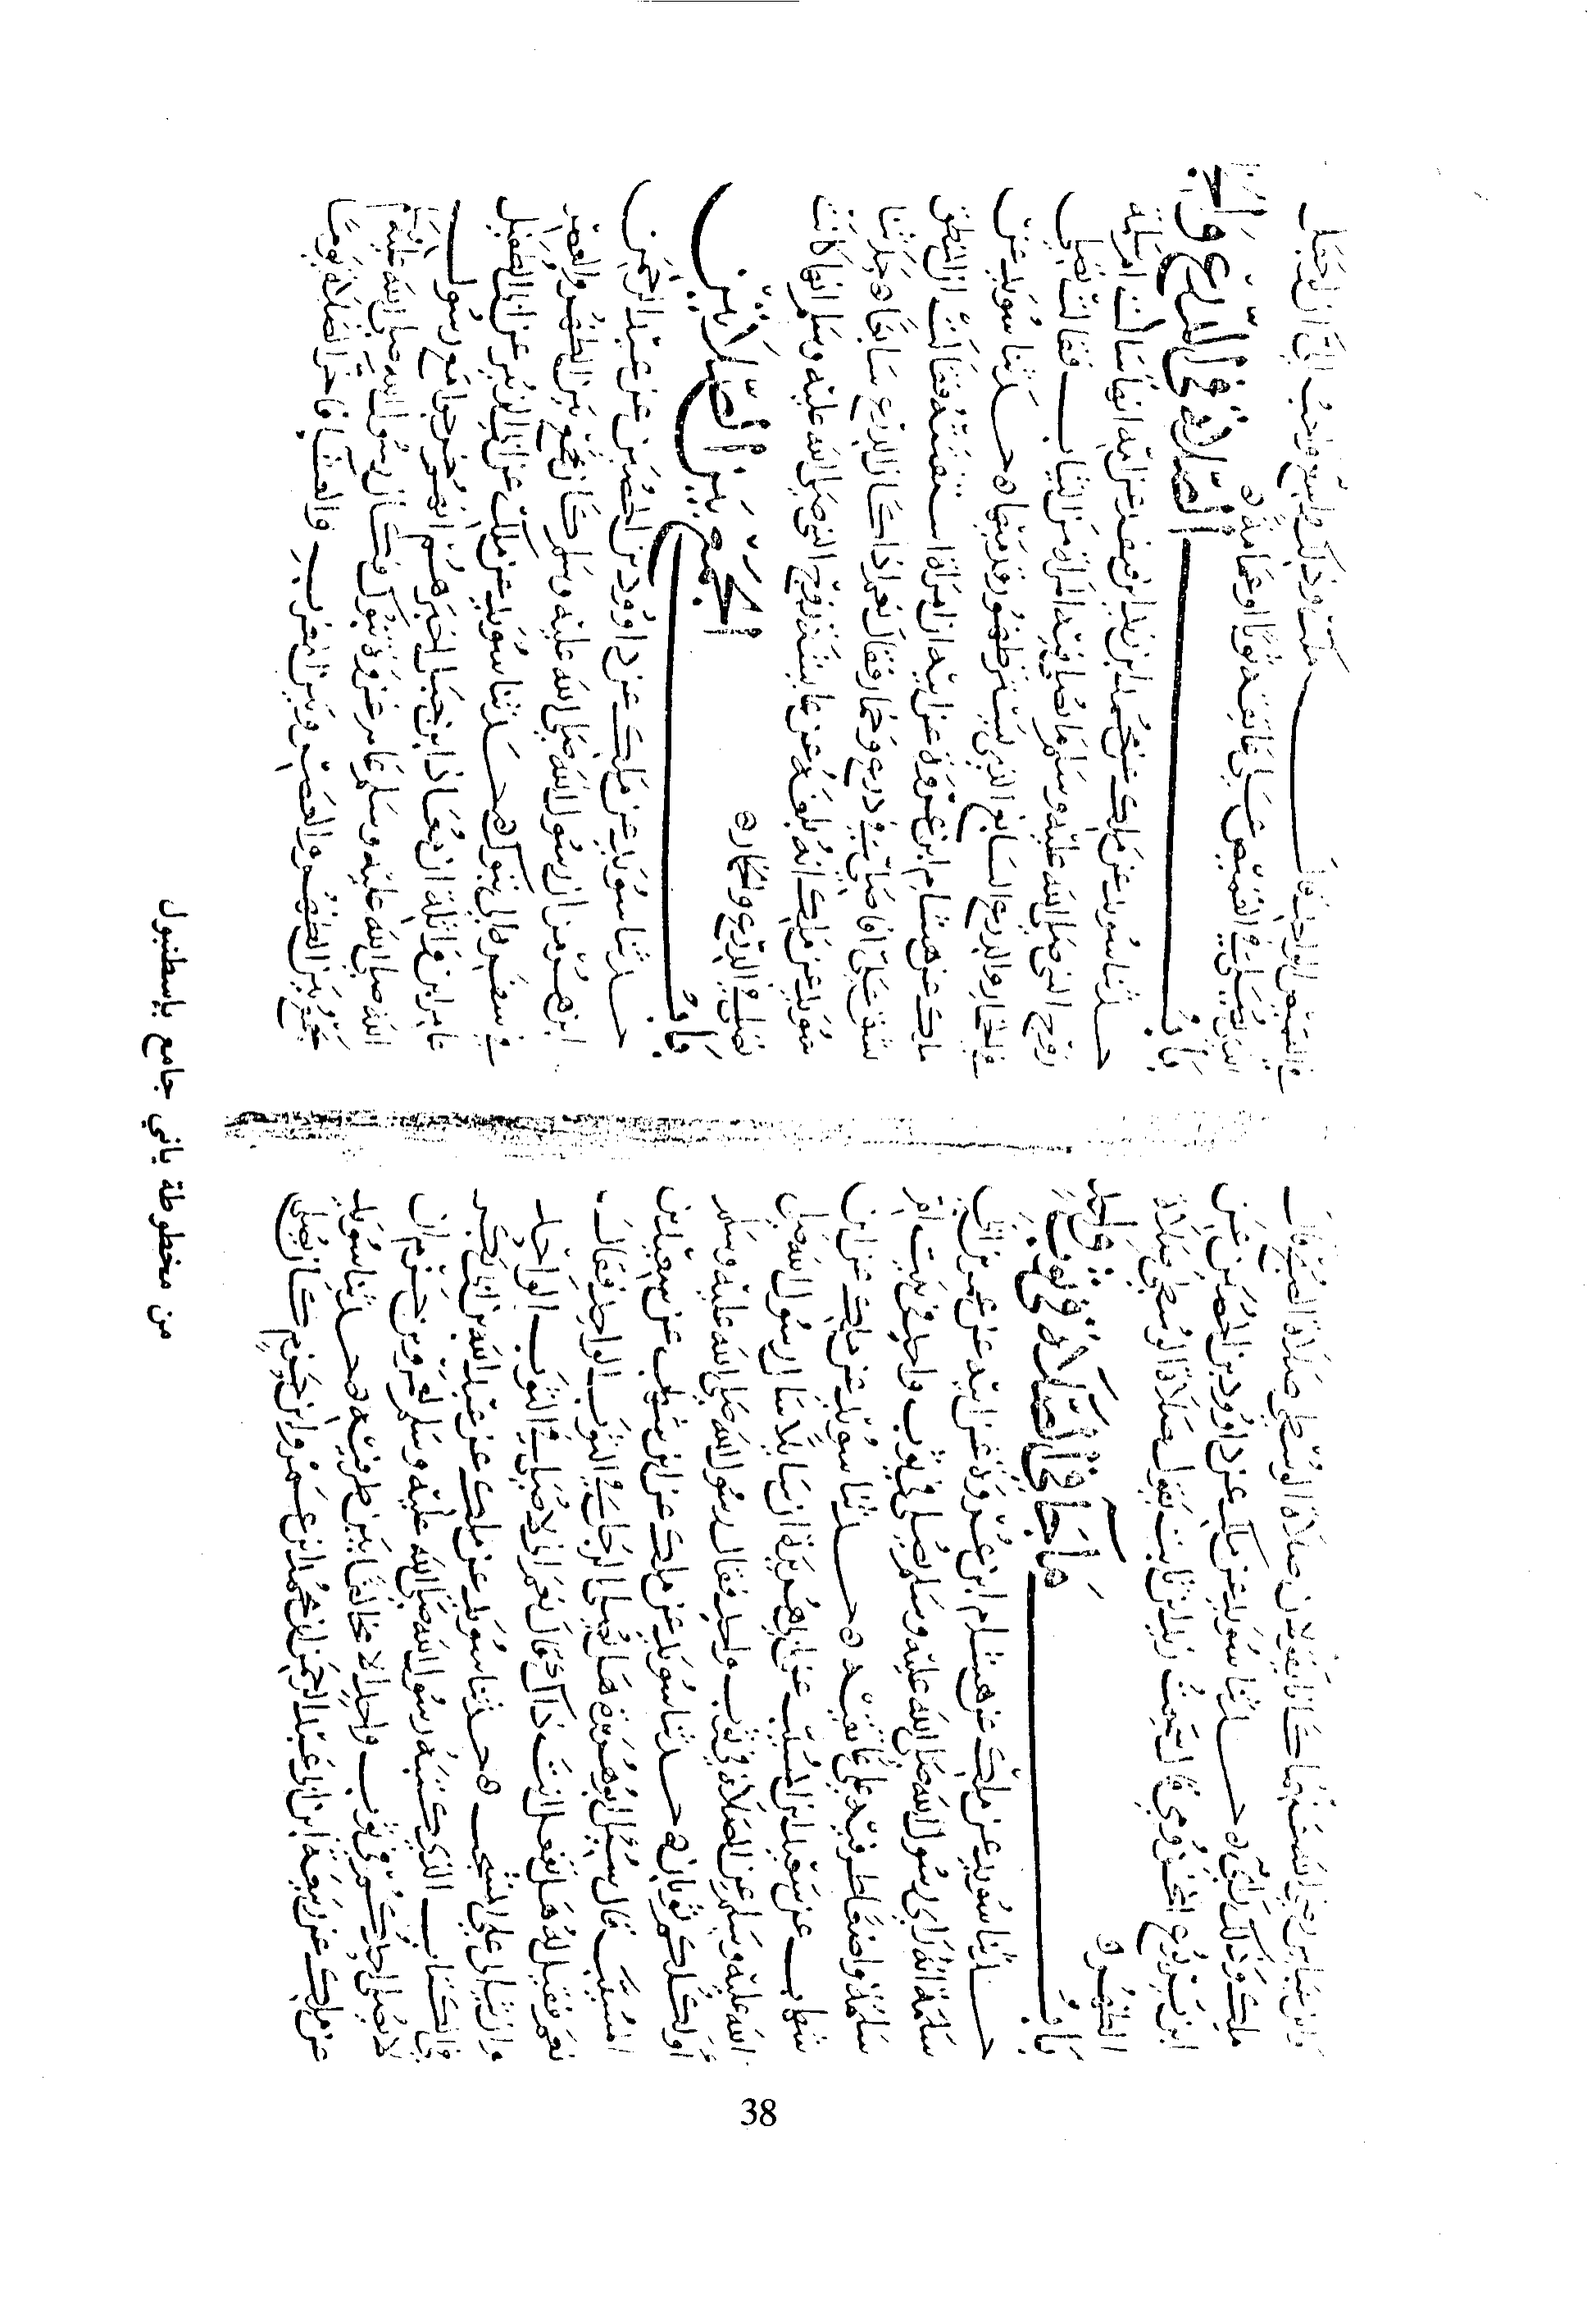 وابن عباس رضي الله عنهما كانا يقولان صلاة الوسطى صلاة الصبح قال
ملك وذلك رأيي ه حدثنا سويد عن ملك عن داوود بن الحصين عن
ابن يربوع المخزومي قال سمعت زيد ابن ثابت يقول صلاة الوسطى صلاة
الظهر ه
باب ما جا في الصلاة في ثوب واحد
حدثنا سويد عن ملك عن هشام ابن عروة عن ابيه عن عمر بن ابي
سلمة انه راى رسول الله صلى الله عليه وسلم يصلي في ثوب واحد في بيت ام
سلمة واضعا طرفيه على عاتقيه ه حدثنا سويد عن ملك عن ابن
شهاب عن سعيد ابن المسيب عن ابي هريرة ان سايلا سال رسول الله صلى
الله عليه وسلم عن الصلاة في ثوب واحد فقال رسول الله صلى الله عليه وسلم
أولكلكم ثوبان ه حدثنا سويد عن ملك عن ابن شهاب عن سعيد بن
المسيب قال سئل ابو هريرة هل يصلي الرجل في الثوب الواحد فقال
نعم فقيل له هل تفعل انت ذاك قال نعم اني لاصلي في الثوب الواحد
وان ثيابي على المشجب ه حدثنا سويد عن ملك عن عبد الله بن ابي بكر
في الكتاب الذي كتبه رسول الله صلى الله عليه وسلم لعمرو بن حزم ان
لا يصلي احدكم في ثوب واحد الا مخالفا بين طرفيه ه حدثنا سويد
عن ملك عن ربيعة ابن ابي عبد الرحمن ان محمد ابن عمرو ابن حزم كان يصلي
في القميص الواحد قال ملك وذلك واسع واحب الي ان يجعل
الذي يصلي في القميص على عاتقه ثوبا او عمامة ه
باب الصلاة في الدرع
حدثنا سويد عن ملك عن محمد ابن زيد ابن قنفذ عن امه انها سالت ام سلمة
زوج النبي صلى الله عليه وسلم ما تصلي فيه المراة من الثياب فقالت تصلي
في الخمار والدرع السابغ الذي يستر ظهور قدميها ه حدثنا سويد عن
ملك عن هشام ابن عروة عن ابيه ان امراة استفتته فقالت ان المنطق
شق علي افاصلي في درع وخمار فقال نعم اذا كان الدرع سابغا ه حدثنا
سويد عن ملك انه بلغه عن عايشة زوج النبي صلى الله عليه وسلم انها كانت
تصلي في الدرع والخمار ه
باب الجمع بين الصلاتين
حدثنا سويد عن ملك عن داوود بن الحصين عن عبد الرحمن
ابن هرمز ان رسول الله صلى الله عليه وسلم كان يجمع بين الظهر والعصر
في سفره الى تبوك ه حدثنا سويد عن ملك عن ابي الزبير عن ابي الطفيل
عامر ابن واثلة ان معاذ ابن جبل اخبرهم انهم خرجوا مع رسول
الله صلى الله عليه وسلم عام غزوة تبوك فكان رسول الله صلى الله عليه وسلم
يجمع بين الظهر والعصر وبين المغرب والعشا فاخر الصلاة يوما
من مخطوطة ياني جامع بإسطنبول
38